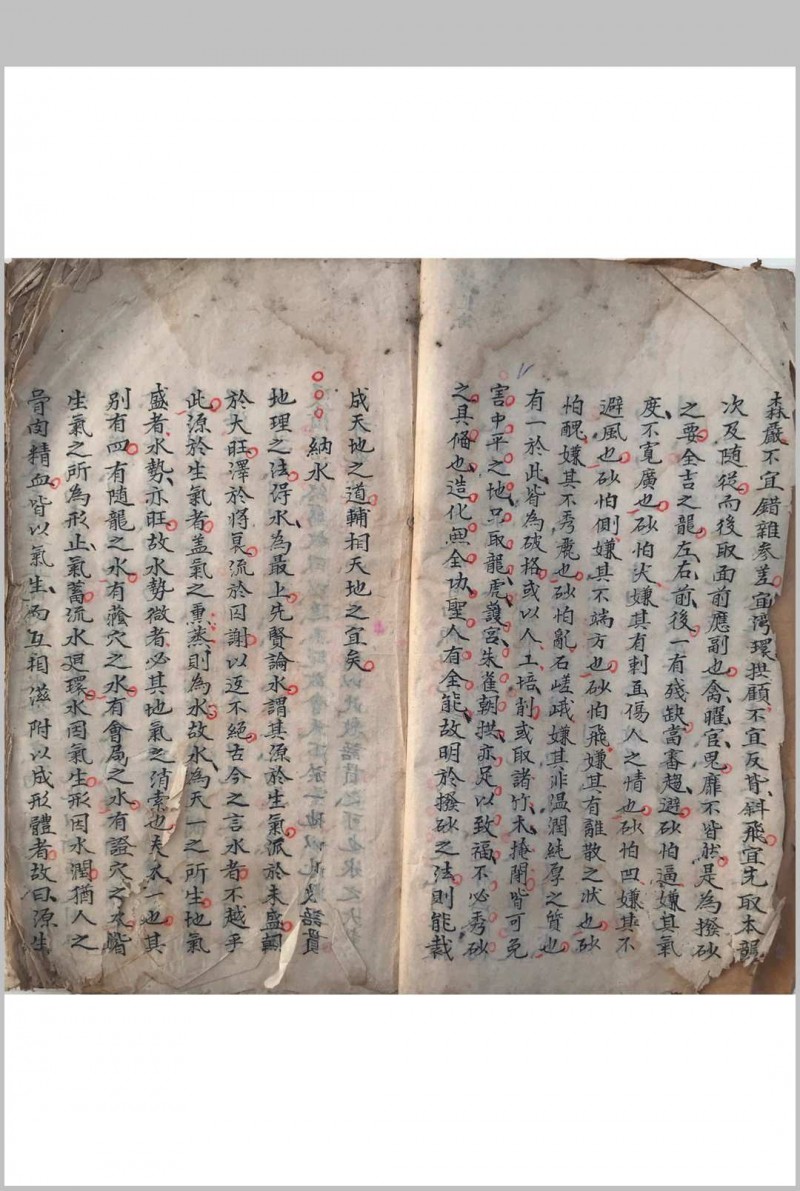 森嚴不宜錯雜參差宜灣環拱顧不宜反背斜飛宜先取本龍
次及隨從而後取面前應副也禽曜官鬼靡不皆然是為撥砂
之要全吉之龍左右前後一有殘缺當審趨避砂怕逼嫌其氣
度不寬廣也砂怕尖嫌其有刺面傷人之情也砂怕凹嫌其不
避風也砂怕側嫌其不端方也砂怕飛嫌其有離散之狀也砂
怕醜嫌其不秀麗也砂怕亂石嵯峨嫌其非温潤純厚之質也
有一於此皆為破格或以人工培削或取諸竹木掩閉皆可免
害中平之地只取龍虎護宮朱雀朝拱亦足以致福不必秀砂
之具偹也造化無全功聖人有全能故明於撥砂之法則能裁
成天地之道輔相天地之宜矣
納水
地理之法得水為最上先賢論水謂其源於生氣派於未盛朝
於大旺澤於將衰流於囚謝以返不絕古今之言水者不越乎
此源於生氣者盖氣之熏蒸則為水故水為天一之所生地氣
盛者水勢亦旺故水勢微者必其地氣之消索也夫水一也其
別有四有隨龍之水有蔭穴之水有會局之水有證穴之水皆
生氣之所為形止氣蓄流水廻環水因氣生形因水潤猶人之
骨肉精血皆以氣生而互相滋附以成形體者故曰源生